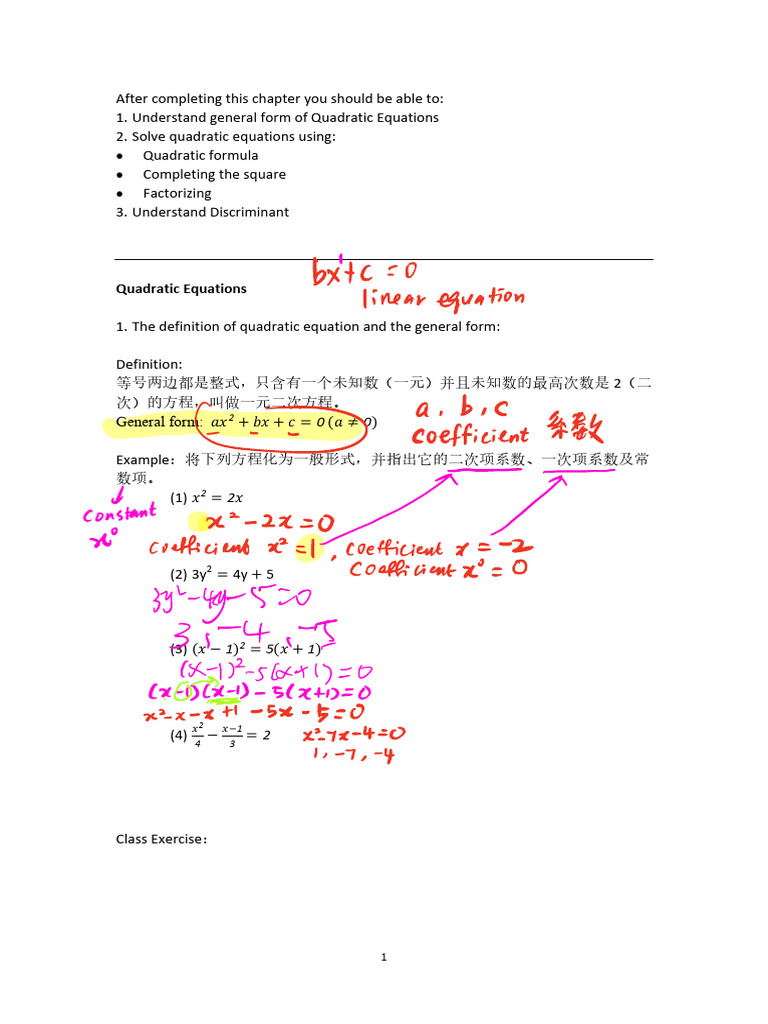 After completing this chapter you should be able to:
1. Understand general form of Quadratic Equations
2. Solve quadratic equations using:
• Quadratic formula
• Completing the square
• Factorizing
3. Understand Discriminant
bx¹+c=0
linear equation
Quadratic Equations
1. The definition of quadratic equation and the general form:
Definition:
等号两边都是整式，只含有一个未知数（一元）并且未知数的最高次数是 2（二
次）的方程，叫做一元二次方程。
General form: ax² + bx + c = 0 (a ≠ 0)
a, b, c
coefficient 系数
Example：将下列方程化为一般形式，并指出它的二次项系数、一次项系数及常
数项。
constant
x⁰
(1) x² = 2x
x²-2x=0
coefficient x²=1, coefficient x=-2
coefficient x⁰=0
(2) 3y² = 4y + 5
3y²-4y-5=0
3, -4, -5
(3) (x − 1)² = 5(x + 1)
(x-1)²-5(x+1)=0
(x-1)(x-1)-5(x+1)=0
x²-x-x+1-5x-5=0
(4) x²/4 − x−1/3 = 2
x²-7x-4=0
1, -7, -4
Class Exercise：
1